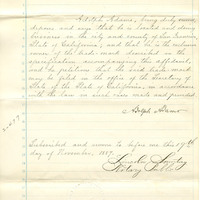 Adolph Adams, being duly sworn,
deposes and says that he is located and doing
business in the city and county of San Francisco,
State of California; and that he is the exclusive
owner of the trade mark described in the
specification accompanying this affidavit,
and he petitions that the said trade-mark
may be filed in the office of the Secretary
of State of the State of California, in accordance
with the law in such case made and provided
Adolph Adams
Subscribed and sworn to before me this 17th
day of December, 1887.
Notary Public